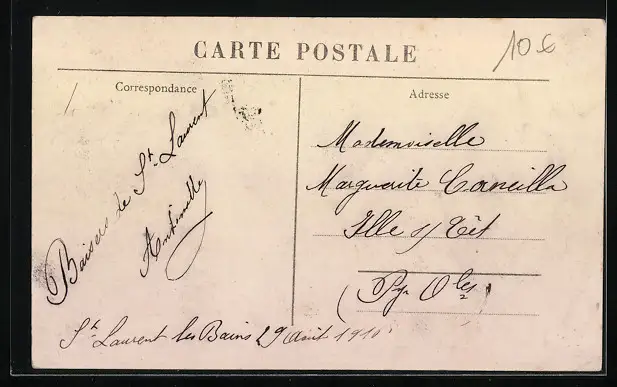 CARTE POSTALE
10€
Correspondance
Adresse
Baisers de St. Laurent
Mademoiselle
Marguerite Corneilla
Ille s/ Têt
(Pyr Oles)
St Laurent les Bains 29 Août 1910